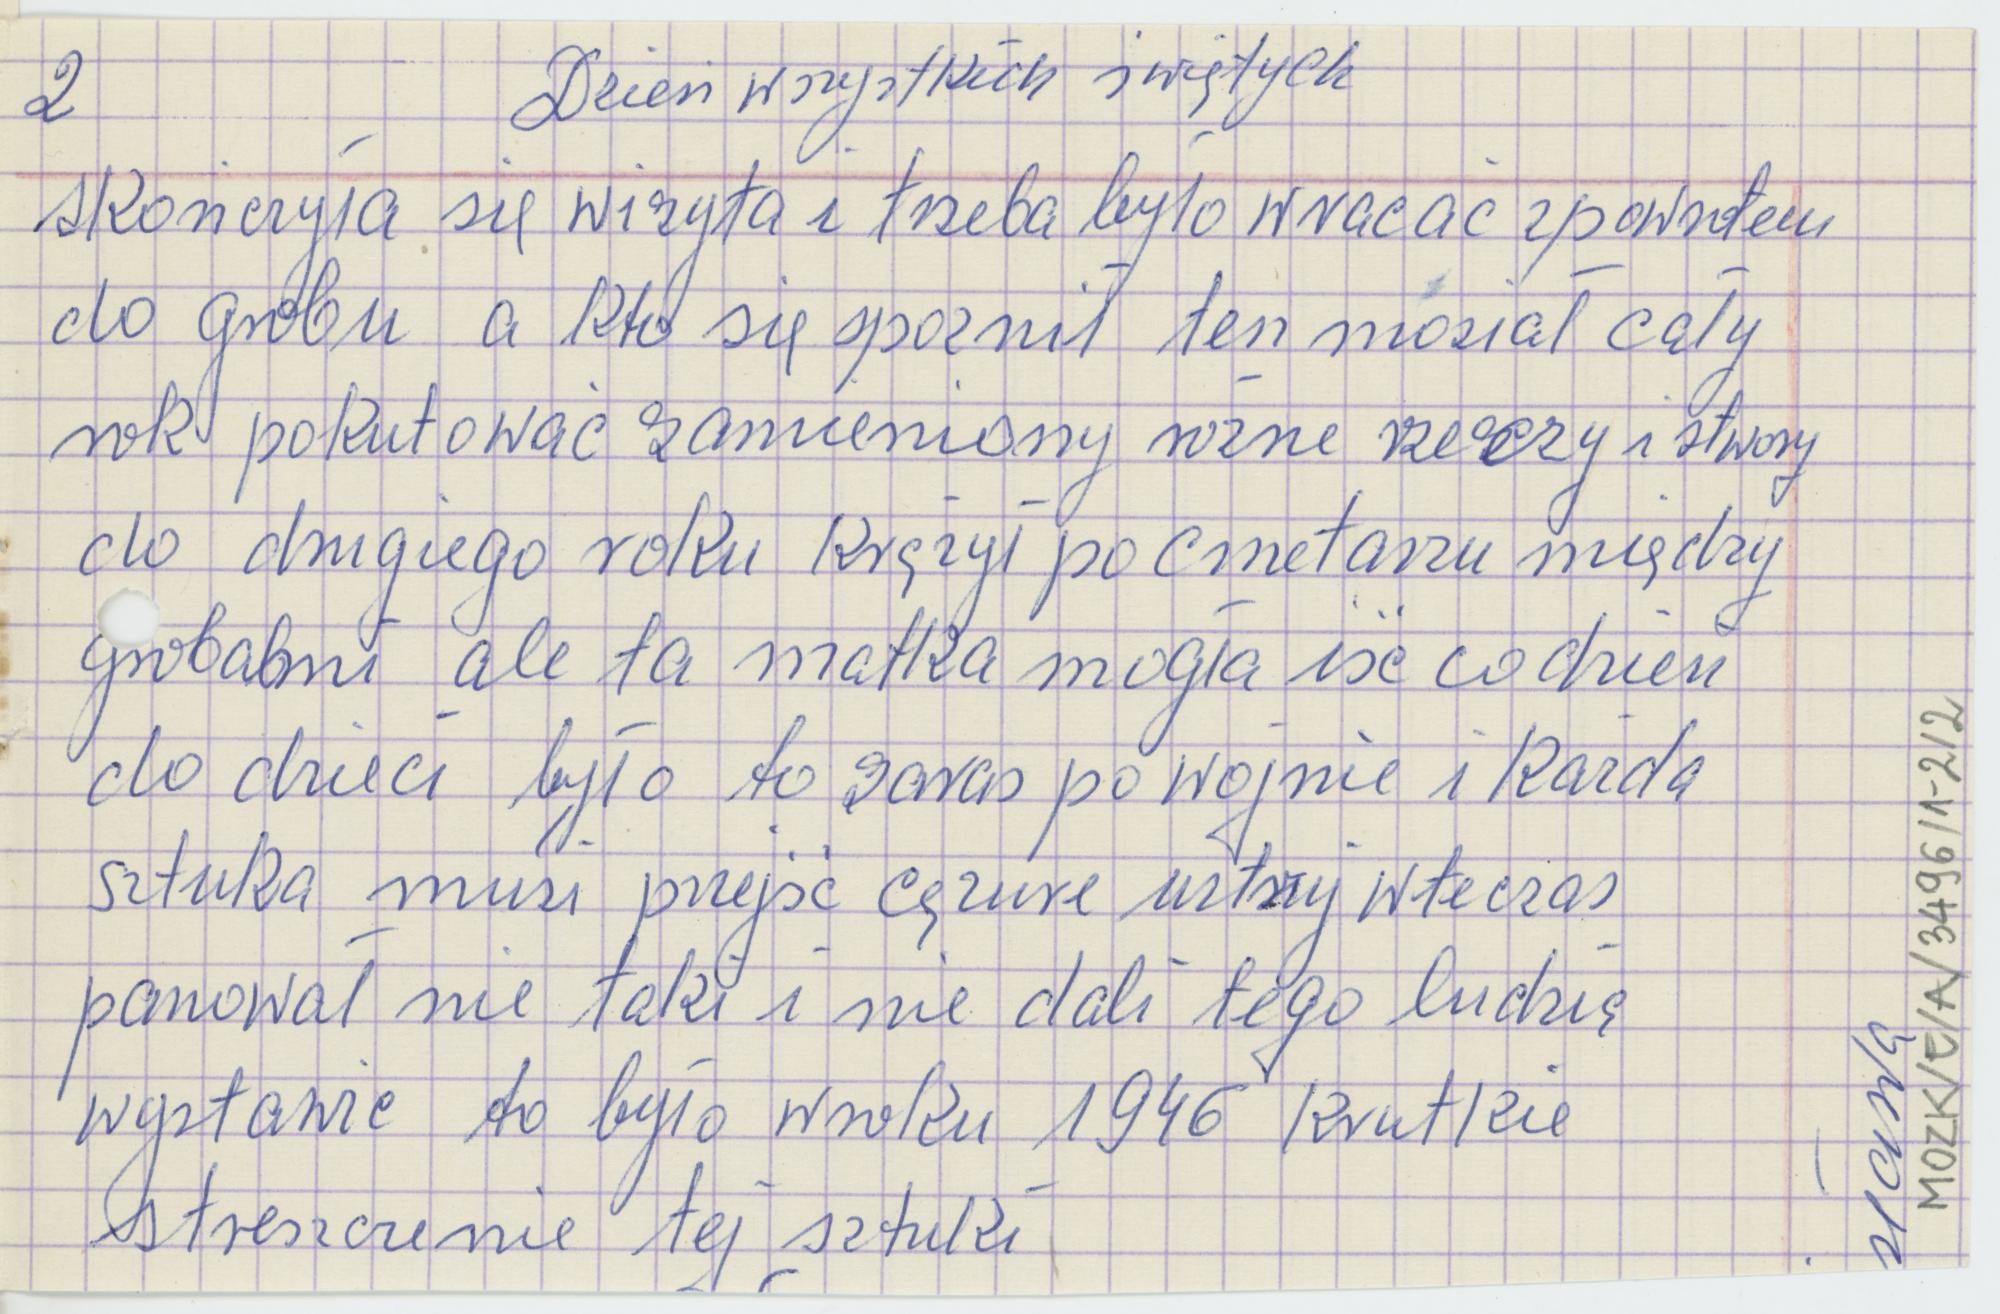 2 Dzień wszystkich świętych
skończyła się wizyta i trzeba było wracać zpowrotem
do grobu a kto się spoznił ten mósiał cały
rok pokutować zamieniony rożne rzeczy i stwory
do drugiego roku krężył po cmetarzu między
grobabmi ale ta matka mogła iść codzień
do dzieci było to zaras po wojnie i każda
sztuka musi przejść cęzure ustruj wteczas
panował nie taki i nie dali tego ludzią
wystawic to było wroku 1946 krutkie
streszczenie tej sztuki
MOZK/E/A/3496/1-2/2